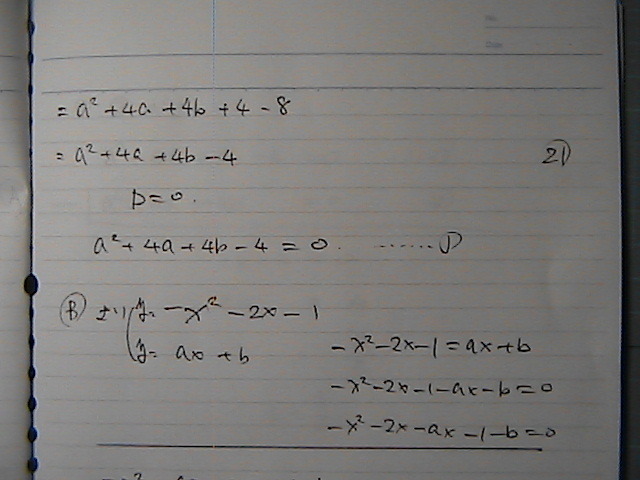 = a² + 4a + 4b + 4 - 8
= a² + 4a + 4b - 4
21)
D = 0.
a² + 4a + 4b - 4 = 0. ......
Ⓑ より y = -x² - 2x - 1
y = ax + b
-x² - 2x - 1 = ax + b
-x² - 2x - 1 - ax - b = 0
-x² - 2x - ax - 1 - b = 0